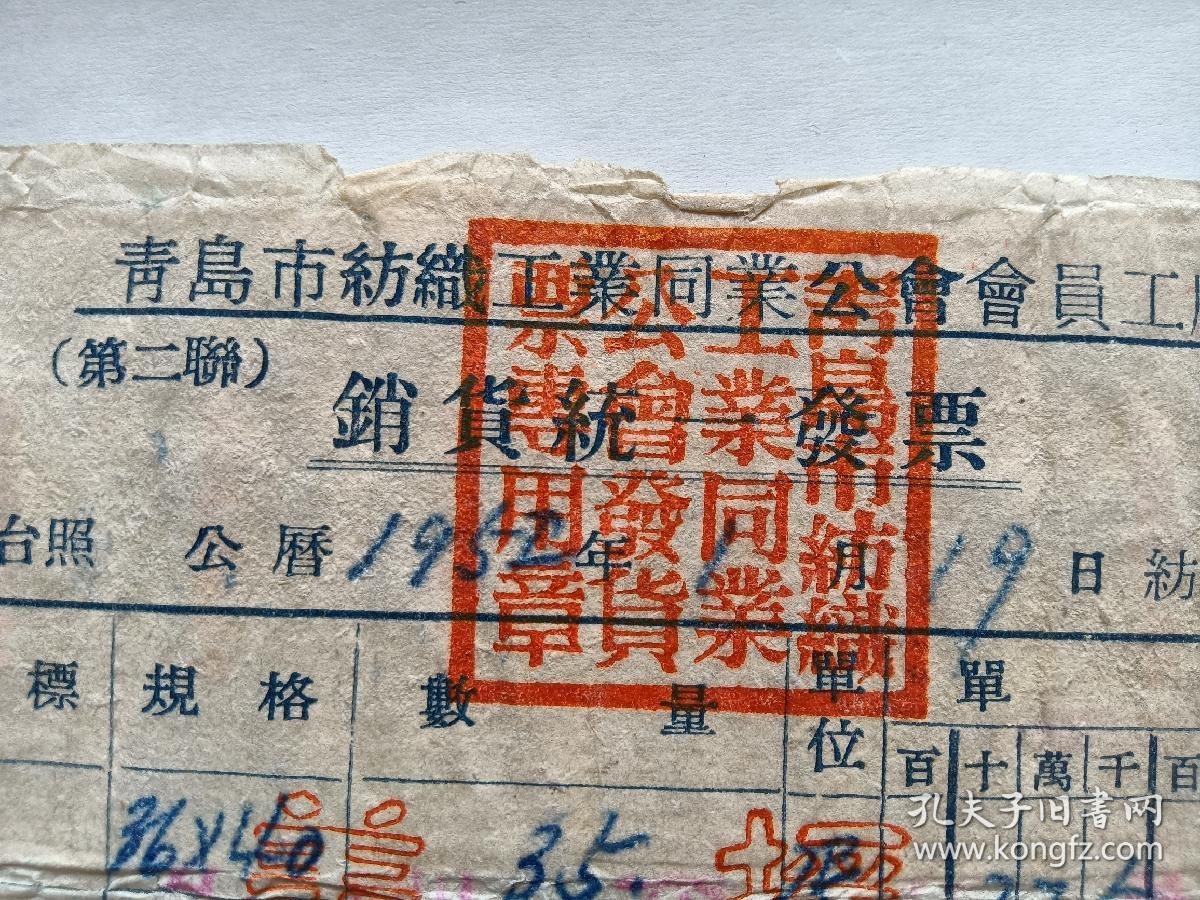 青島市紡織工業同業公會會員工
(第二聯)
銷貨統一發票
台照 公曆 1952 年 1 月 19 日 紡
青島市紡織
工業同業
公會發貨
票專用章
標 規格 數量 單位 單
百 十 萬 千 百
36X40 35.
孔夫子旧书网
www.kongfz.com